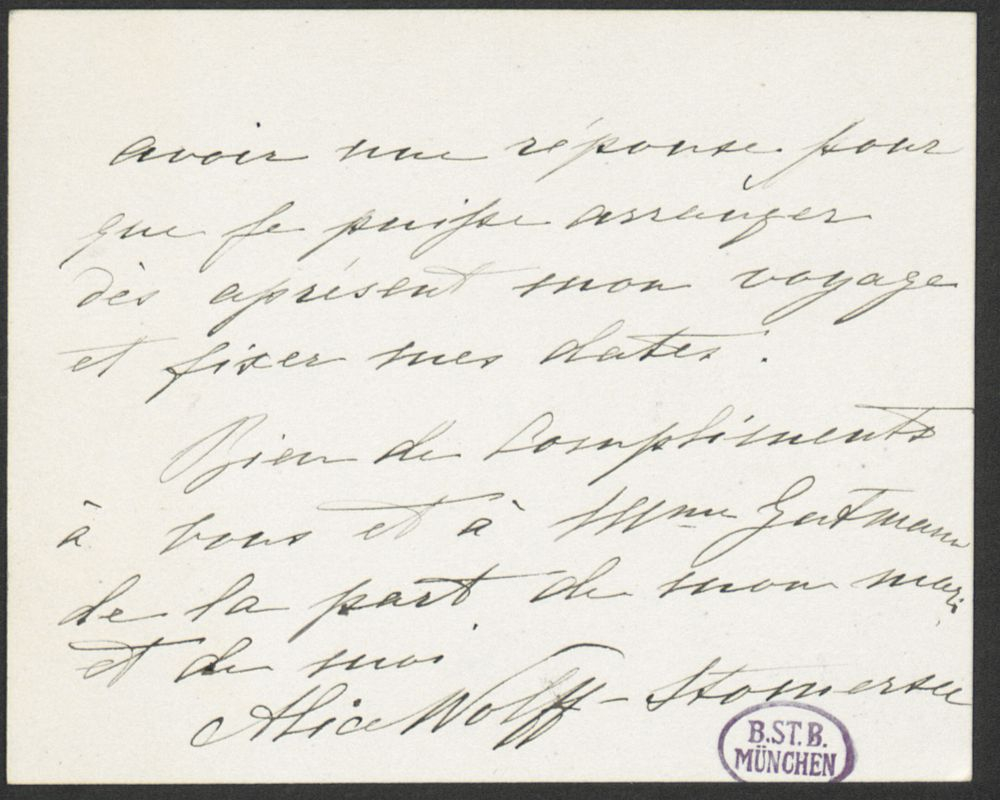 avoir une réponse pour
que je puisse arranger
dès aprésent mon voyage
et fixer mes dates.
Bien de compliments
à vous et à Mme Gutmann
de la part de mon mari
et de moi
Alice Wolff-Stomersee
B.ST.B.
MÜNCHEN